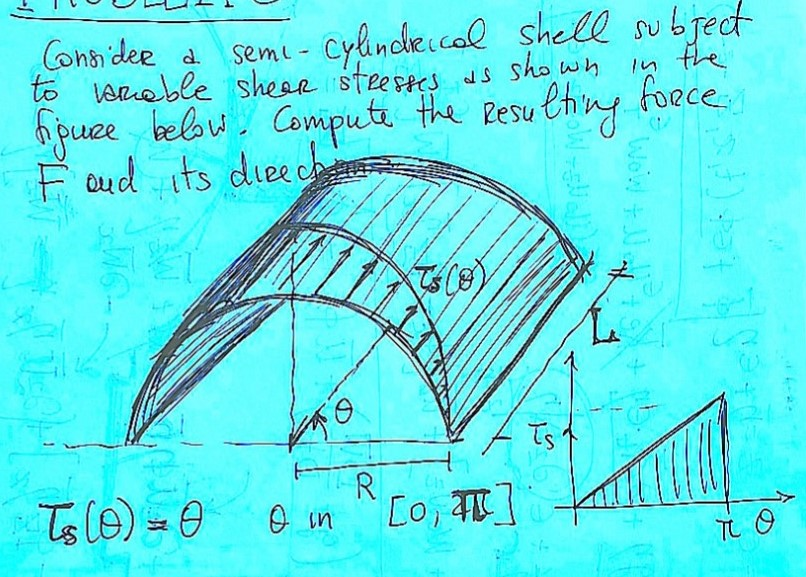 Consider a semi-cylindrical shell subject
to variable shear stresses as shown in the
figure below. Compute the resulting force
F and its direction
τs(θ)
L
θ
τs
R
π θ
τs(θ) = θ θ in [0, π]